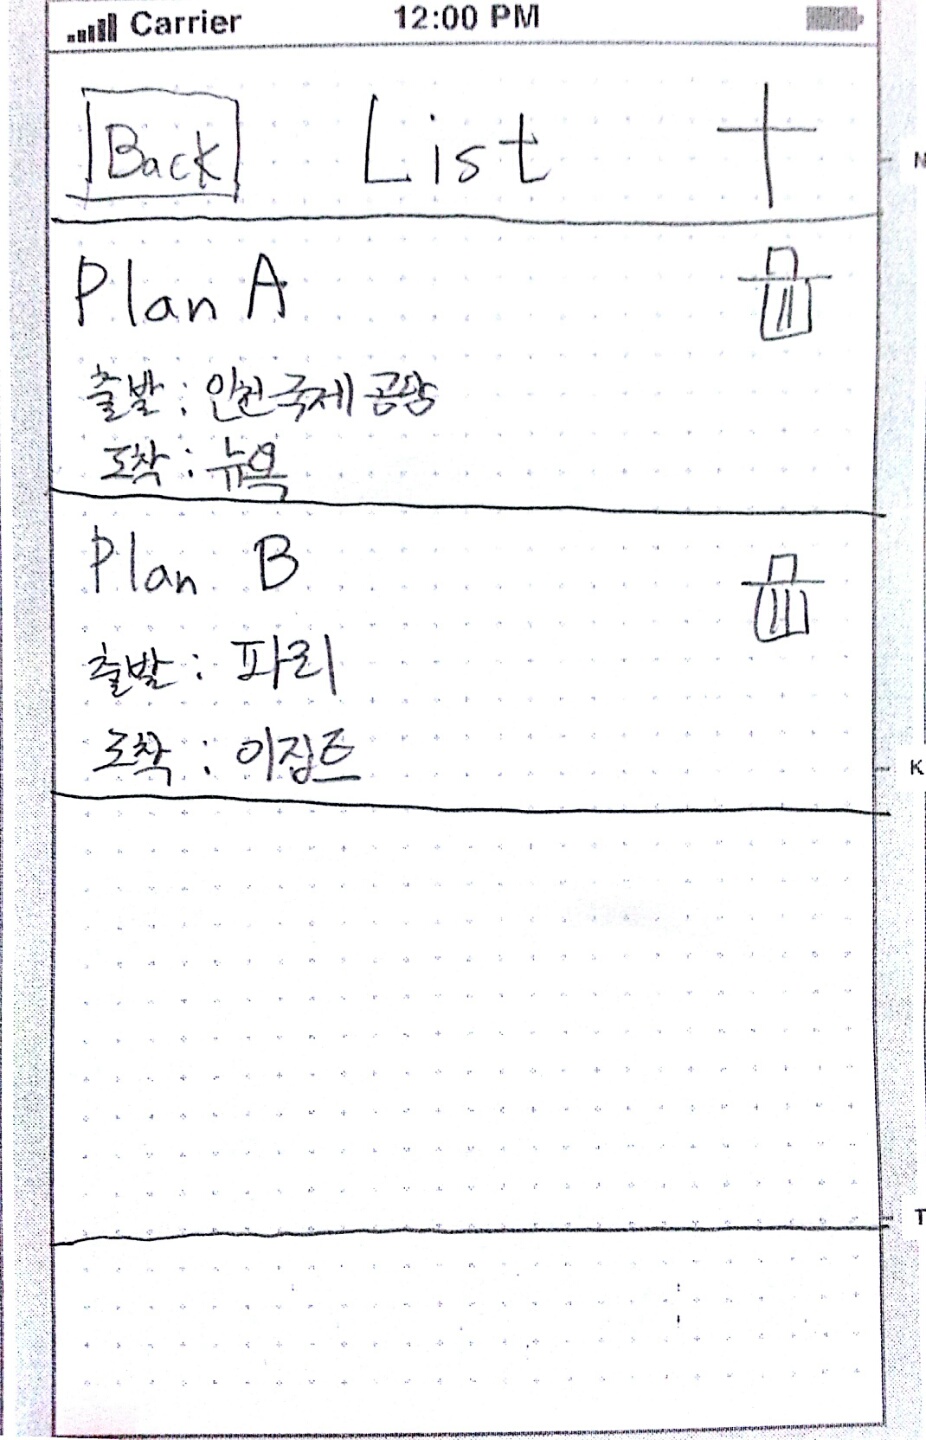 Carrier 12:00 PM
Back List +
Plan A
출발 : 인천국제공항
도착 : 뉴욕
Plan B
출발 : 파리
도착 : 이집트
N
K
T